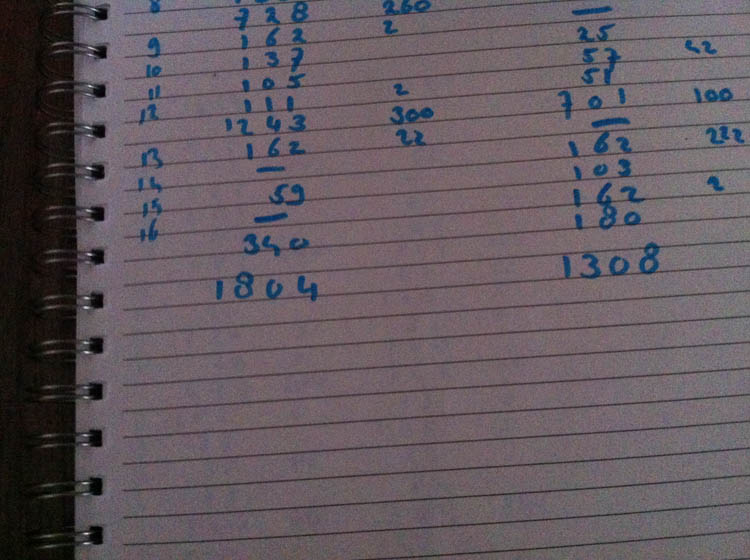 8
728 260
162 2 25
9 137 57 42
10 105 51
11 111 2 701 100
12 1243 300
162 22 162 222
13 103
14 59 162 2
15 180
16 340
1804 1308